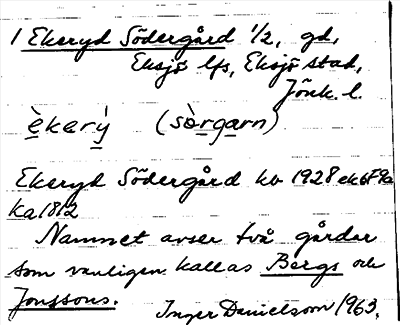 1 Ekeryd Södergård 1/2, gd,
Eksjö lfs, Eksjö stad,
Jönk. l.
èkarý (sòrgarn)
Ekeryd Södergård kv 1928 ek 6F9a
Ka 1812
Namnet avser två gårdar
som vanligen kallas Bergs och
Jonssons.
Inger Danielsson 1963.